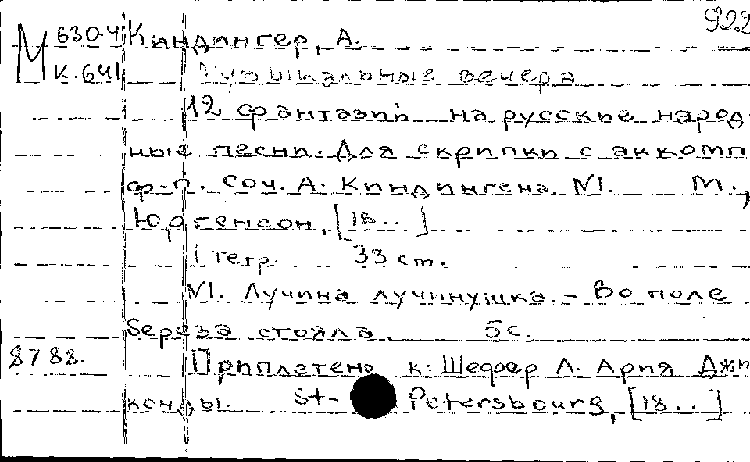 922
М 630-4 Киндингер, А.
К. 641 Музыкальные вечера
12 фантазий на русские народ-
ные песни. Для скрипки с аккомп
ф-п. Соч. А. Киндингена. №1. М.,
Юргенсон, [18..]
1 тетр. 33 см.
№1. Лучина лучинушка. - Во поле
береза стояла. 5с.
8788. Приплетено к: Шефер Л. Ария Джи
конды. St- Petersbourg, [18..]